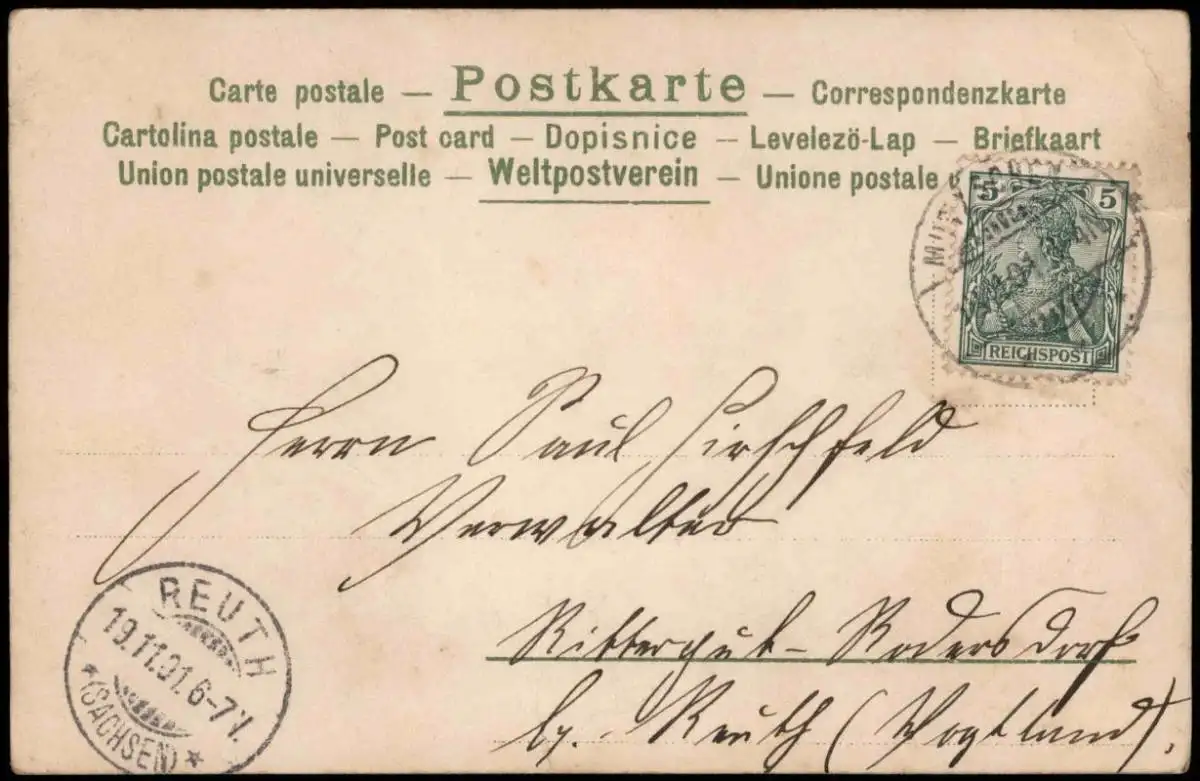 Carte postale — Postkarte — Correspondenzkarte
Cartolina postale — Post card — Dopisnice — Levelezö-Lap — Briefkaart
Union postale universelle — Weltpostverein — Unione postale
5 5
REICHSPOST
Herrn Paul Hirschfeld
Verwalter
Rittergut-Rodersdorf
b/. Reuth (Vogtland).
REUTH
19.11.01. 6-7V.
*(SACHSEN)*